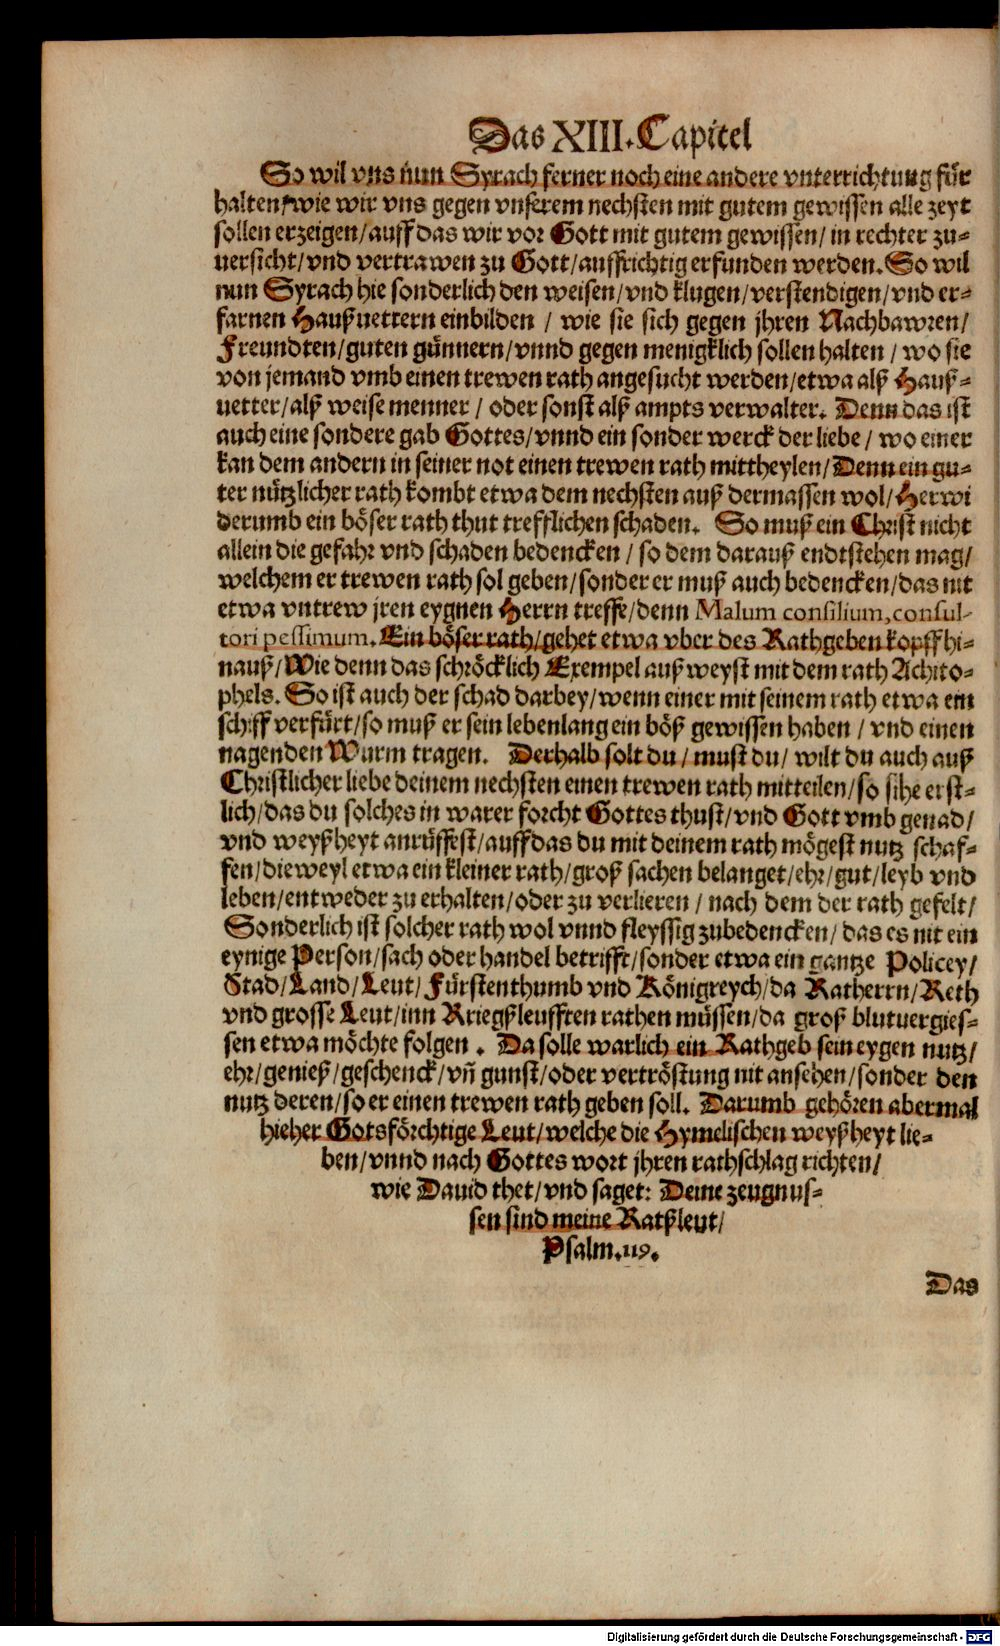 Das XIII. Capitel
So wil vns nun Syrach ferner noch eine andere vnterrichtung für
halten/wie wir vns gegen vnserem nechsten mit gutem gewissen alle zeyt
sollen erzeigen/auff das wir vor Gott mit gutem gewissen/in rechter zu-
uersicht/vnd vertrawen zu Gott/auffrichtig erfunden werden. So wil
nun Syrach hie sonderlich den weisen/vnd klugen/verstendigen/vnd er-
farnen Haußuettern einbilden / wie sie sich gegen jhren Nachbawren/
Freundten/guten günnern/vnnd gegen menigklich sollen halten / wo sie
von jemand vmb einen trewen rath angesucht werden/etwa alß Hauß-
uetter/alß weise menner / oder sonst alß ampts verwalter. Denn das ist
auch eine sondere gab Gottes/vnnd ein sonder werck der liebe / wo einer
kan dem andern in seiner not einen trewen rath mittheylen/Denn ein gu-
ter nützlicher rath kombt etwa dem nechsten auß dermassen wol/Herwi
derumb ein böser rath thut trefflichen schaden. So muß ein Christ nicht
allein die gefahr vnd schaden bedencken / so dem darauß endtstehen mag/
welchem er trewen rath sol geben/sonder er muß auch bedencken/das nit
etwa vntrew jren eygnen Herrn treffe/denn Malum consilium, consul-
tori pessimum. Ein böser rath/gehet etwa vber des Rathgeben kopff hi-
nauß/Wie denn das schröcklich Exempel auß weyst mit dem rath Achito-
phels. So ist auch der schad darbey/wenn einer mit seinem rath etwa ein
schiff verfürt/so muß er sein lebenlang ein böß gewissen haben / vnd einen
nagenden Wurm tragen. Derhalb solt du / must du/ wilt du auch auß
Christlicher liebe deinem nechsten einen trewen rath mitteilen/so sihe erst-
lich/das du solches in warer forcht Gottes thust/vnd Gott vmb genad/
vnd weyßheyt anrüffest/auff das du mit deinem rath mögest nutz schaf-
fen/dieweyl etwa ein kleiner rath/groß sachen belanget/ehr/gut/leyb vnd
leben/entweder zu erhalten/oder zu verlieren / nach dem der rath gefelt/
Sonderlich ist solcher rath wol vnnd fleyssig zubedencken/das es nit ein
eynige Person/sach oder handel betrifft/sonder etwa ein gantze Policey/
Stad/Land/Leut/Fürstenthumb vnd Königreych/da Ratherrn/Reth
vnd grosse Leut/inn Kriegßleufften rathen müssen/da groß blutuergies-
sen etwa möchte folgen . Da solle warlich ein Rathgeb sein eygen nutz/
ehr/genieß/geschenck/vñ gunst/oder vertröstung nit ansehen/sonder den
nutz deren/so er einen trewen rath geben soll. Darumb gehören abermal
hieher Gotsförchtige Leut/welche die Hymelischen weyßheyt lie-
ben/vnnd nach Gottes wort jhren rathschlag richten/
wie Dauid thet/vnd saget: Deine zeugnus-
sen sind meine Ratßleut/
Psalm.119.
Das
Digitalisierung gefördert durch die Deutsche Forschungsgemeinschaft - DFG